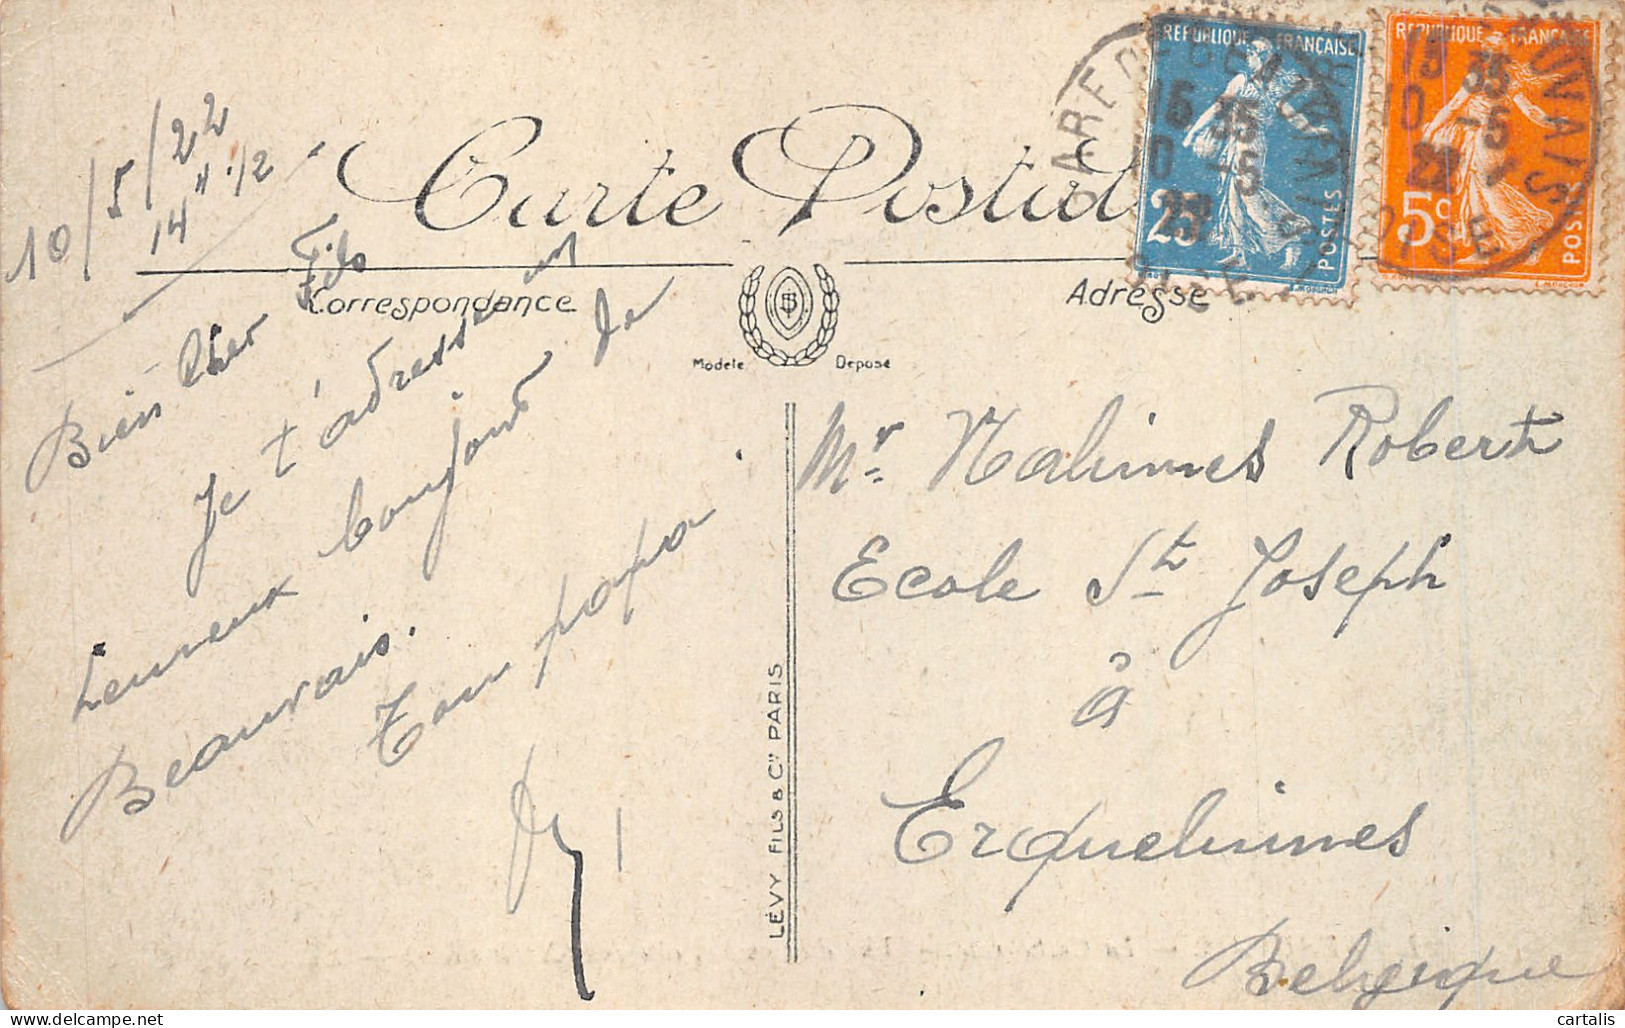 10/5/22
14 H 1/2
Carte Postale
Correspondance
Adresse
Modèle Déposé
Bien Cher Fils
Je t'adresse un
heureux bonjour de
Beauvais.
Ton papa
LÉVY FILS & Cie PARIS
Mr. Robert
Ecole St Joseph
à
Erquelinnes
Belgique
REPUBLIQUE FRANÇAISE
25
POSTES
REPUBLIQUE FRANÇAISE
5c
POSTES
GARE DE BEAUVAIS
15 35
10 -5
22
OISE
15 35
10 -5
22
OISE
cartalis